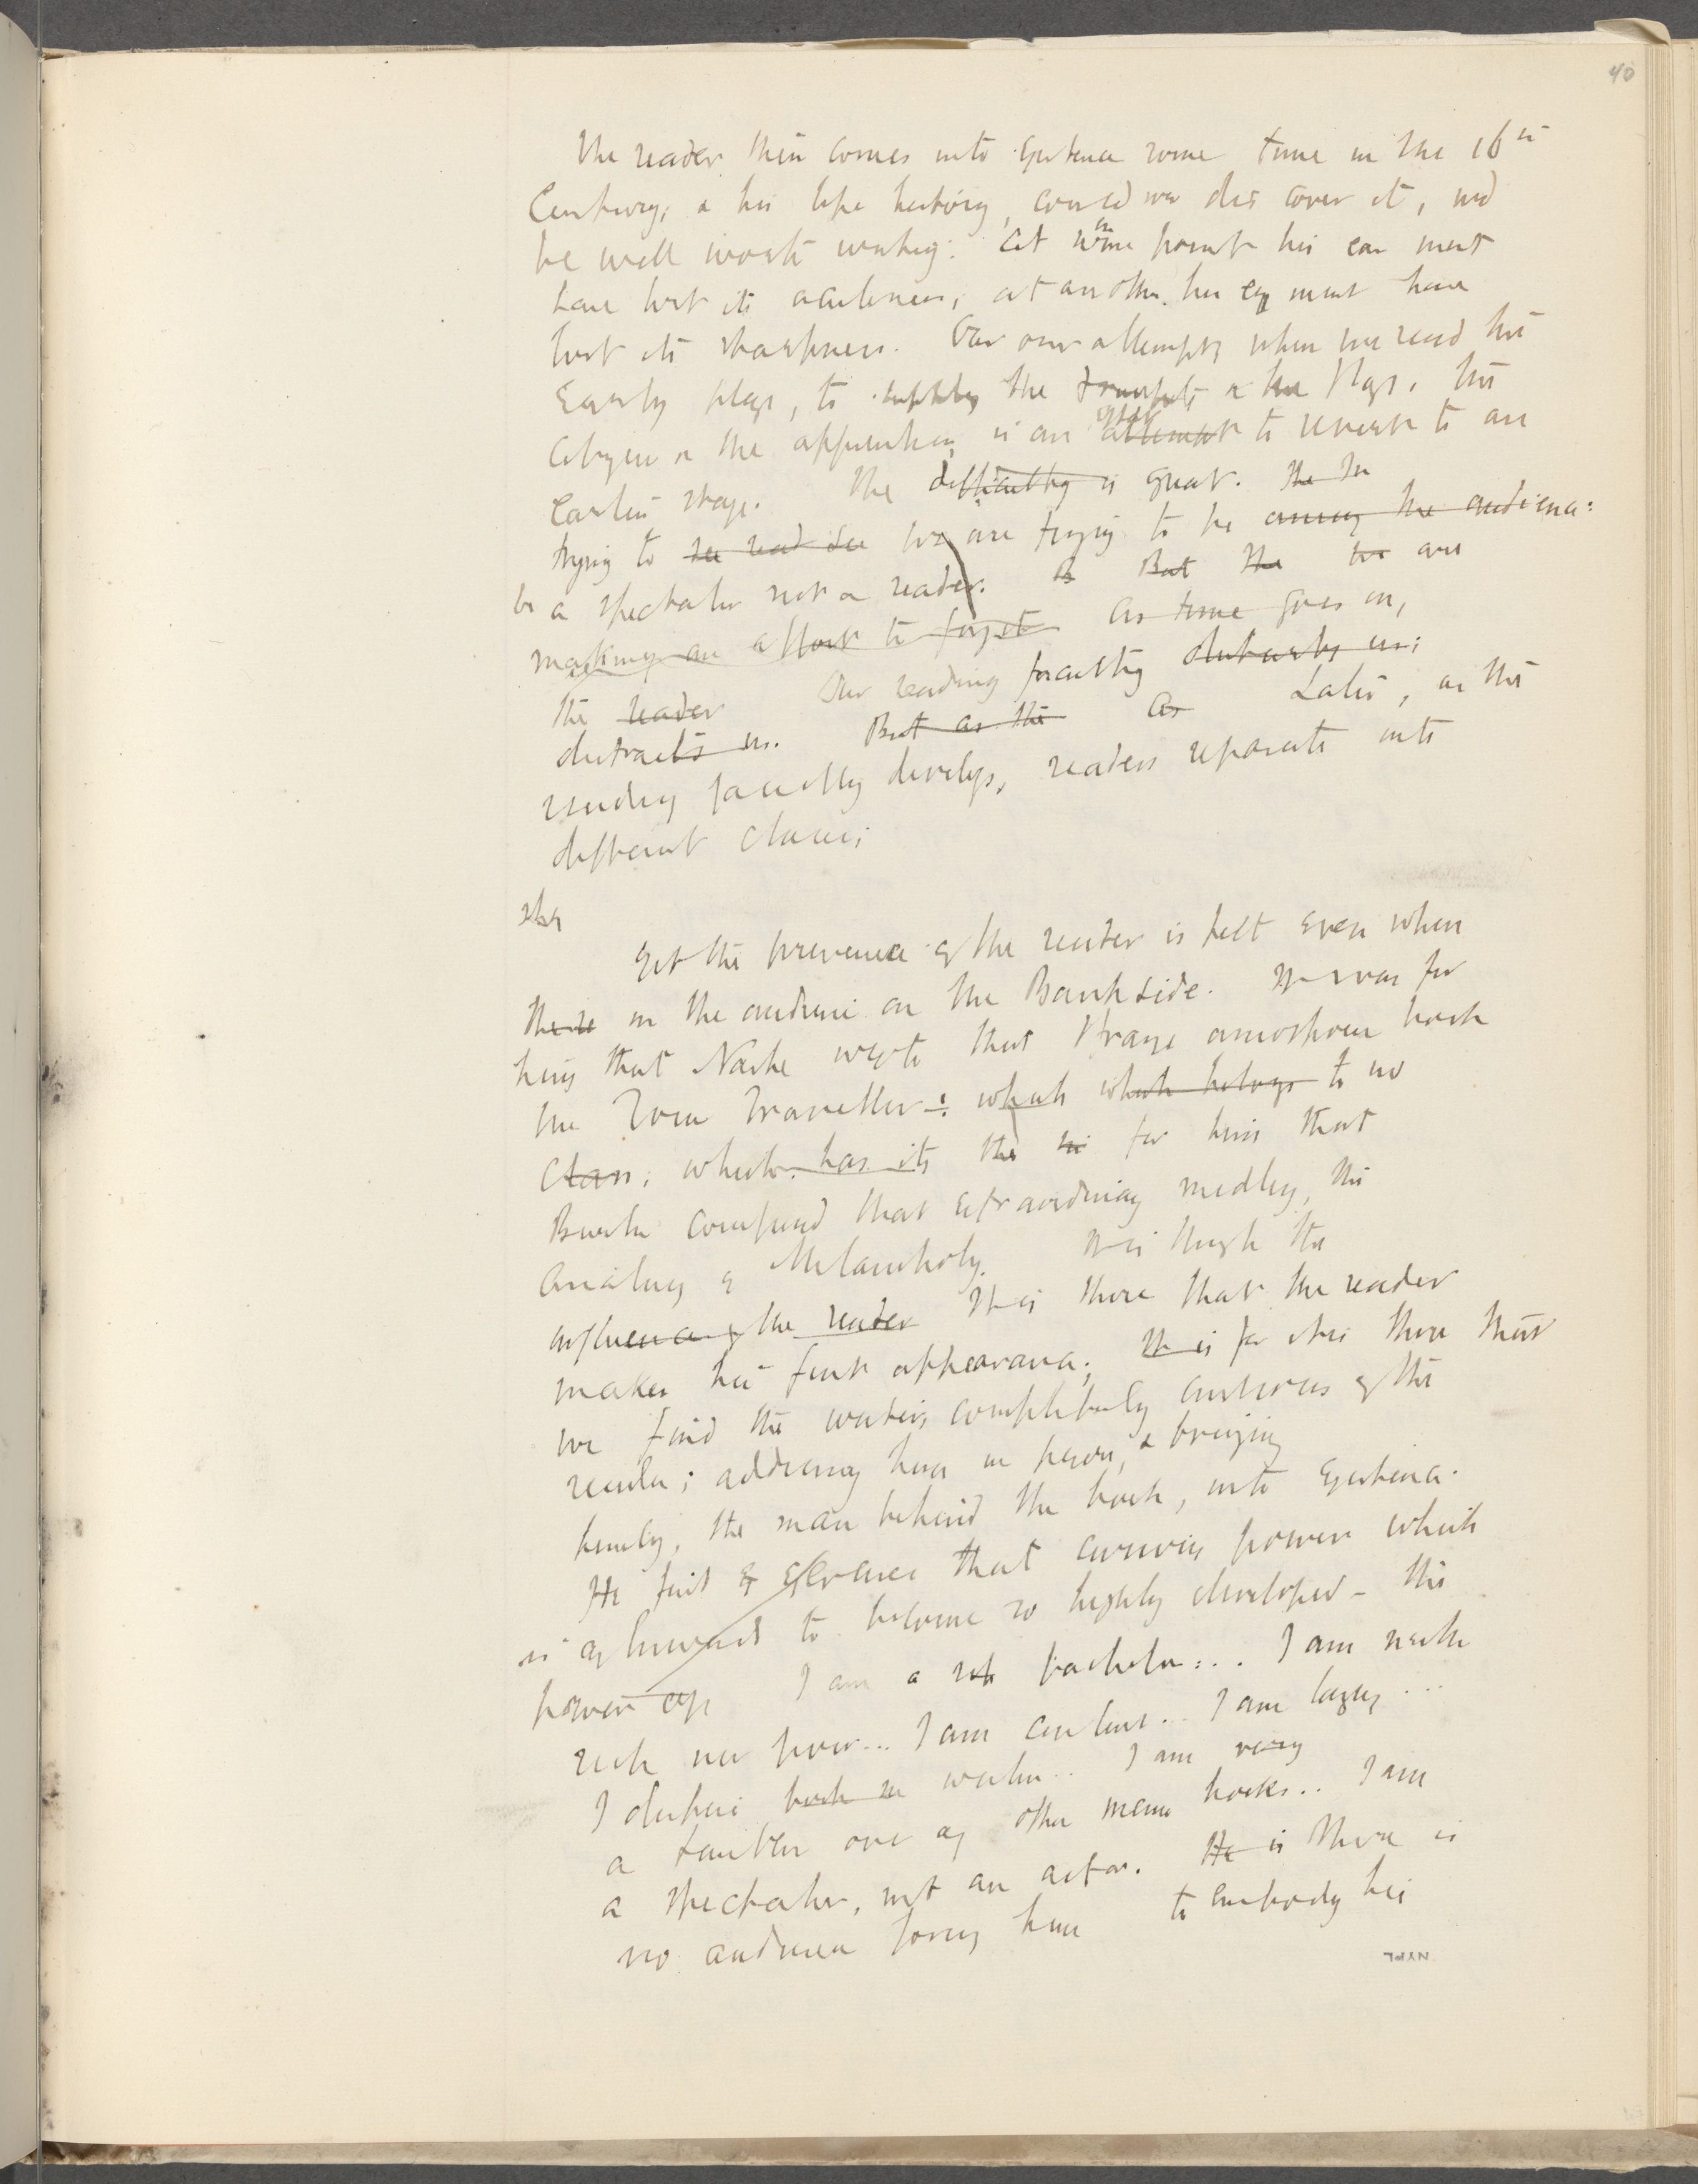 40
The reader then comes into existence some time in the 16th
Century, & his life history, could we discover it, wd
be well worth writing. At some point his ear must
have lost its acuteness; at another his eye must have
lost its sharpness. For our attempt, when we read the
Early plays, to supply the trumpets & the flags, the
Citizens & the apprentices, is an effort attempt to revert to an
Earlier stage. The difficulty is great. The In
trying to be read see we are trying to be among the audience:
be a spectator not a reader. is But the we are
making an effort to forget As time goes on,
the reader Our reading faculty disturbs us;
distracts us. But as the As Later, as the
reading faculty develops, readers separate into
different classes;
Yet the presence of the reader is felt even when
there in the audience on the Bankside. It was for
him that Nashe wrote that strange amorphous book
the Traveller: which which belongs to no
class; which has its the for him that
Burton composed that extraordinary medley, the
Anatomy of Melancholy. It is through the
influence of the reader It is there that the reader
makes his first appearance; It is for it is there that
we find the writer completely conscious of the
reader; addressing him in person, & bringing
himself, the man behind the book, into existence.
He first exercises that curious power which
is afterwards to become so highly developed - the
power of I am a bachelor... I am neither
rich nor poor... I am... I am lazy...
I both wealth.. I am very
a tumbler over of other mens books.. I am
a spectator, not an actor. He is There is
no audience forcing him to embody his
NYPL